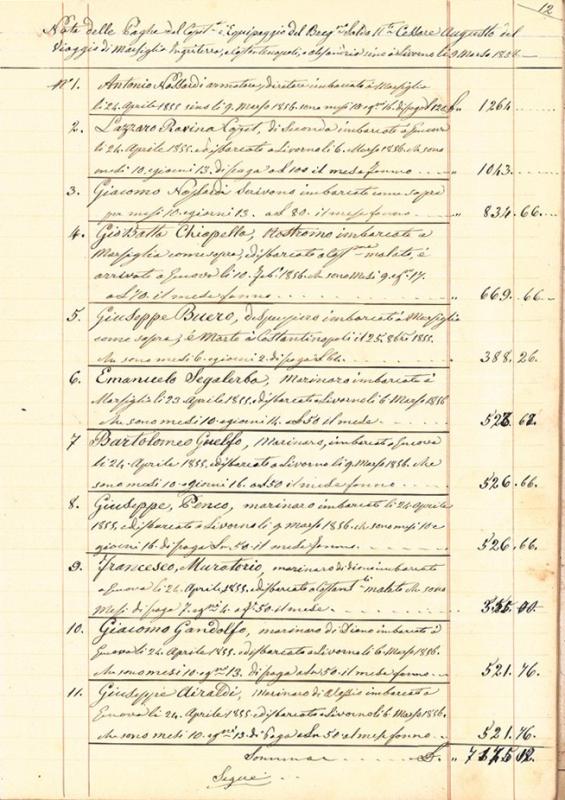 12
Nota delle Paghe del Capit.º e Equipaggio del Brig.º Sardo N.to Cesare Augusto del
Viaggio di Marsiglia Inghiltera, e Costantinopoli, sino a Livorno li 9 Marzo 1856
Nº 1. Antonio armatore, e direttore imbarcato a Marsiglia
li 24 Aprile 1855 sino li 9 Marzo 1856 sono mesi 10 e g.ni 16 di paga 1264
2. Lazzaro Ravina Capit. di Seconda imbarcato a Genova
li 24 Aprile 1855 e disbarcato a Livorno li 6 Marzo 1856 che sono
mesi 10 e giorni 13. di paga a L 100 il mese fanno 1043
3. Giacomo Scrivano imbarcato come sopra
per mesi 10 e giorni 13. a L 80. il mese fanno 834.66
4. Gio Batta Chiapella, Nostromo imbarcato a
Marsiglia come sopra, e disbarcato malato, è
arrivato a Genova li 10 Feb.º 1856 che sono Mesi 9 e g.ni 17.
a L 70. il mese fanno 669.66
5. Giuseppe Buero, imbarcato a Marsiglia
come sopra, è Morto a Costantinopoli il 25 8bre 1855.
che sono mesi 6 e giorni 2 di paga a L 64. 388.26
6. Emanuele Segalerba, Marinaro imbarcato a
Marsiglia li 23 Aprile 1855, e disbarcato a Livorno li 6 Marzo 1856
che sono mesi 10 e giorni 14. a L 50 il mese
7 Bartolomeo Guelfo, Marinaro, imbarcato a Genova
li 24 Aprile 1855. e disbarcato a Livorno li 9 Marzo 1856. che
sono mesi 10 e giorni 16 a L 50 il mese fanno 526.66
8. Giuseppe, Penco, marinaro imbarcato li 24 Aprile
1855, e disbarcato a Livorno li 9 Marzo 1856. che sono mesi 10 e
giorni 16. di paga Ln. 50. il mese fanno 526.66
9. Francesco, Muratorio, marinaro di Diano imbarcato
a Genova li 24 Aprile 1855. e disbarcato a Costant.li malato che sono
Mesi di paga 7. e g.ni 4. a L 50. il mese
10. Giacomo Gandolfo, marinaro di Diano imbarcato a
Genova li 24 Aprile 1855. e disbarcato a Livorno li 6 Marzo 1856.
che sono mesi 10. e g.ni 13. di paga a Ln 50. il mese fanno 521.76
11. Giuseppe Airaldi, Marinaro di Alassio imbarcato a
Genova li 24 Aprile 1855 e disbarcato a Livorno li 6 Marzo 1856.
che sono mesi 10. e g.ni 13. di Paga a Ln 50 il mese fanno 521.76
Sommano L.
Segue